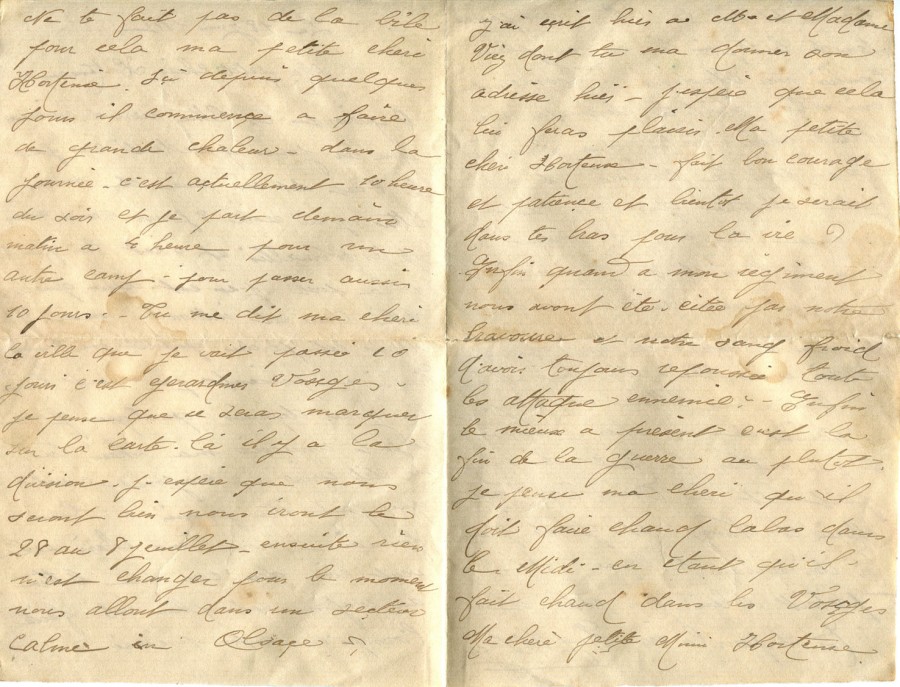 Ne te fait pas de la bile
pour cela ma petite cheri
Hortense. Ici depuis quelques
jours il commence a faire
de grande chaleur - dans la
journée - c'est actuellement 10 heure
du soir et je part demain
matin a 4 heure pour un
autre camp - pour passer aussi
10 jours - Tu me dit ma cheri
la ville que je vait passé 10
jours c'est gerardmer Vosges -
je pense que se seras marquer
sur la carte. là il y a la
division. j'espère que nous
seront bien nous iront le
28 au 8 juillet - ensuite rien
n'est changer pour le moment
nous allont dans un secteur
calme en Alsace
j'ai ecrit hier a Mr et Madame
dont tu ma donner son
adresse hier - j'espère que cela
lui feras plaisir. Ma petite
cheri Hortense - fait bon courage
et patience et bientot je serait
dans tes bras pour la vie
Enfin quand a mon régiment
nous avont été citée par notre
bravoure et notre sang froid
d'avoir toujours repoussée toute
les attaque ennemie - Enfin
le mieux a présent c'est la
fin de la guerre au plutot.
je pense ma cheri qu'il
doit faire chaud labas dans
le Midi - en etant qu'il
fait chaud dans les Vosges
Ma cheri petite Mimi Hortense